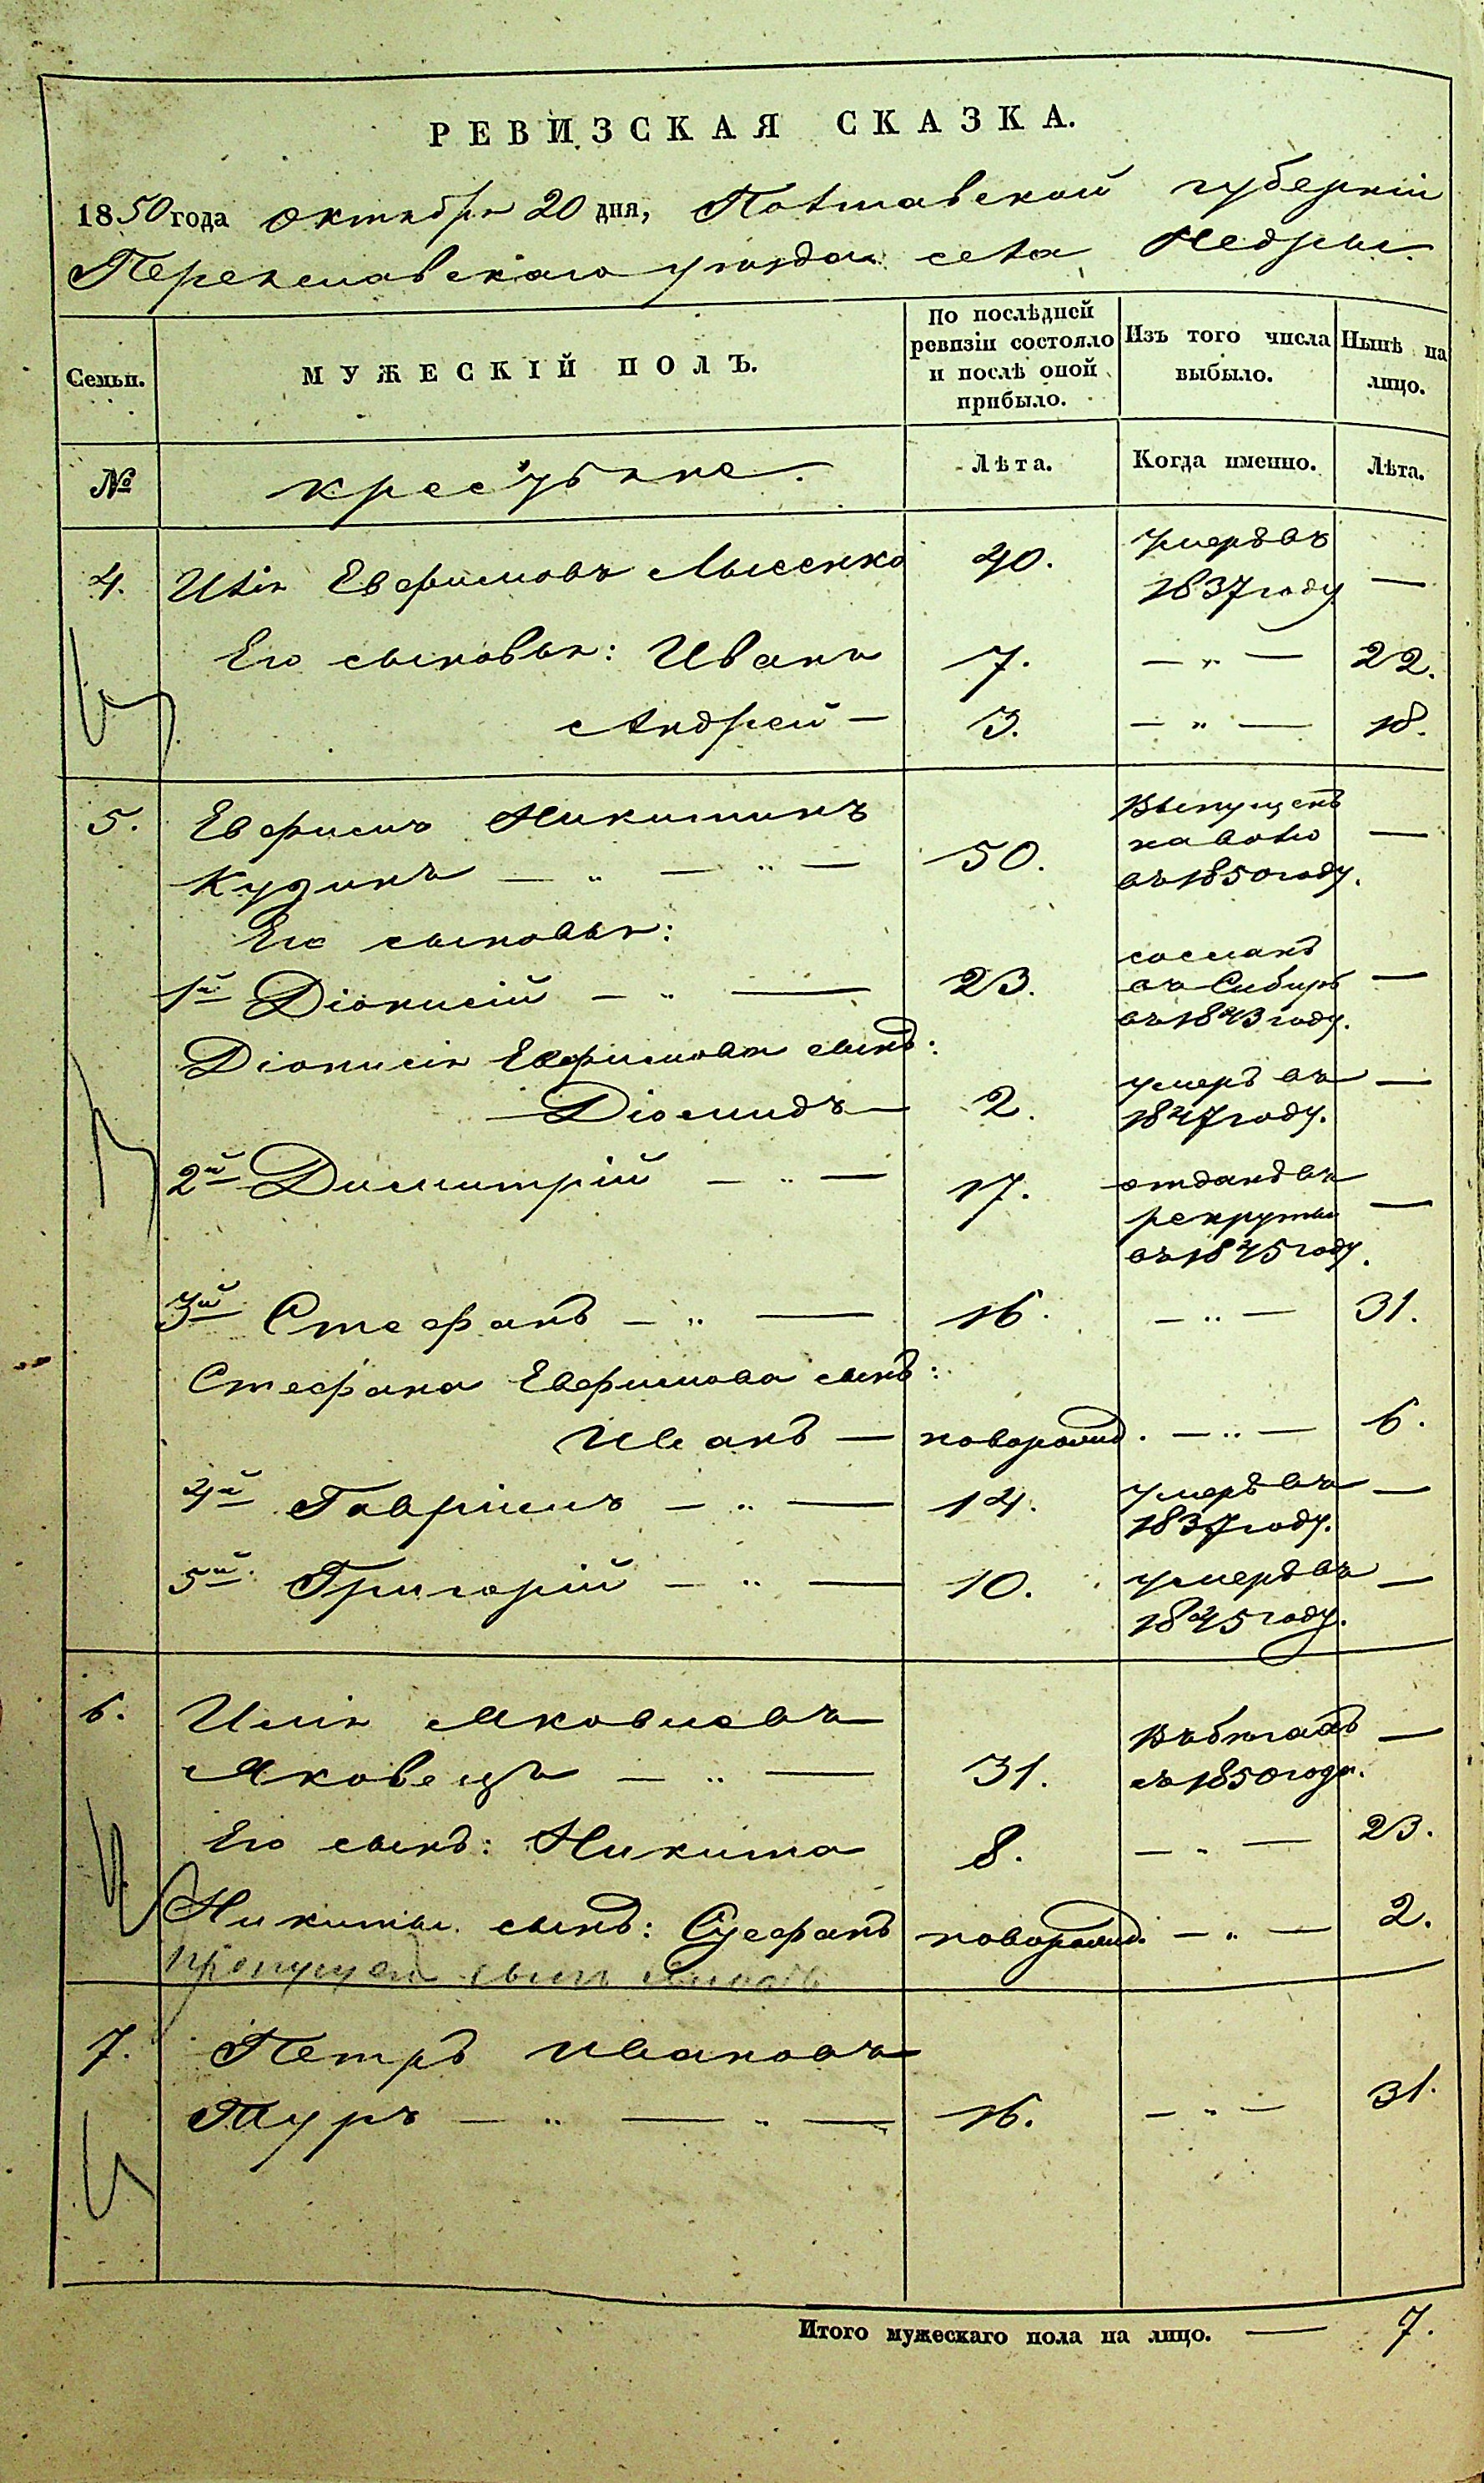 РЕВИЗСКАЯ СКАЗКА.
1850 года октября 20 дня, Полтавской губерніи
Переяславскаго уѣзда села Недры.
Семьи.
МУЖЕСКІЙ ПОЛЪ.
По послѣдней
ревизіи состояло
и послѣ оной
прибыло.
Изъ того числа
выбыло.
Нынѣ на
лицо.
№
крестьяне.
Лѣта.
Когда именно.
Лѣта.
4. Илія Евфимовъ Лысенко 40. умеръ въ 1837 году —
Его сыновья: Иванъ 7. — „ — 22.
Андрей — 3. — „ — 18.
5. Евфимъ Никитинъ
Кузинъ — „ — „ — 50. выпущенъ на волю въ 1850 году. —
Его сыновья:
1й Діонисій — „ — 23. сосланъ въ Сибирь въ 1843 году. —
Діонисія Евфимова сынъ:
Діомидъ — 2. умеръ въ 1847 году. —
2й Димитрій — „ — 17. отданъ въ рекруты въ 1845 году. —
3й Стефанъ — „ — 16. — „ — 31.
Стефана Евфимова сынъ:
Иванъ — новорожд. — „ — 6.
4й Гавріилъ — „ — 14. умеръ въ 1837 году. —
5й Григорій — „ — 10. умеръ въ 1845 году. —
6. Илія Яковлевъ
Яковецъ — „ — 31. въ бѣгахъ съ 1850 года. —
Его сынъ: Никита 8. — „ — 23.
Никиты сынъ: Стефанъ новорожд. — „ — 2.
пропущен сын
7. Петръ Ивановъ
Туръ — „ — „ — 16. — „ — 31.
Итого мужескаго пола на лицо. — 7.